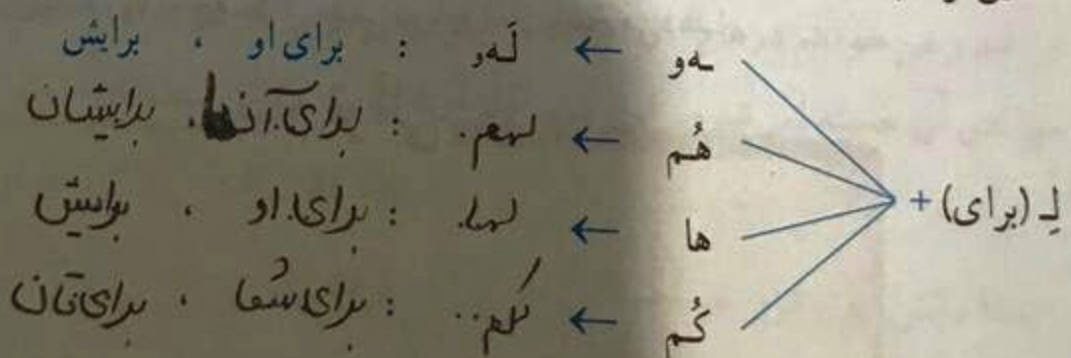 لِـ (برای) +
ـهو ← لَهو : برای او ، برایش
هُم ← لهم. : برای آنها ، برایشان
ها ← لها. : برای او ، برایش
کُم ← لکم.. : برای شما ، برای تان